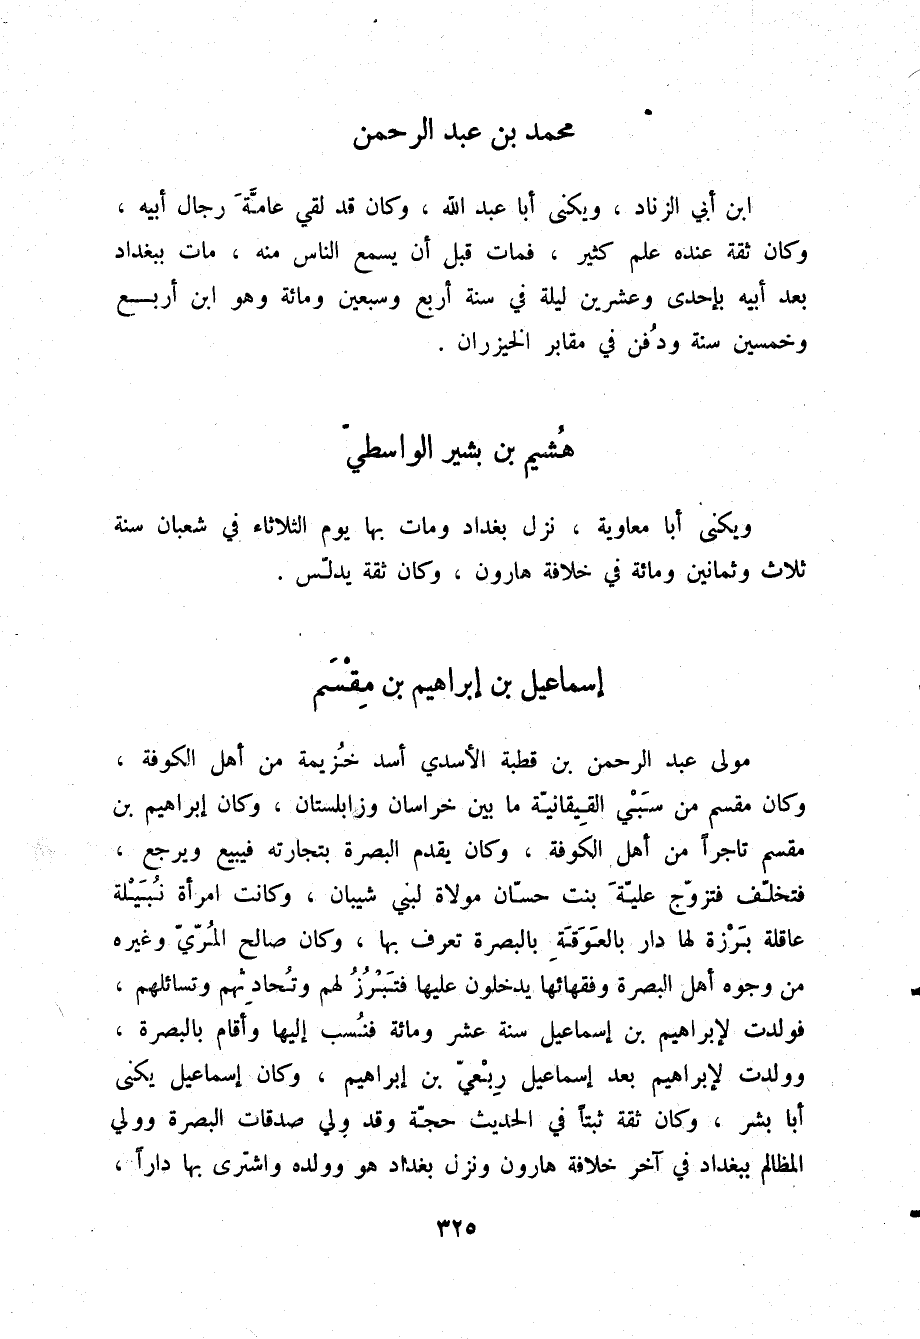 محمد بن عبد الرحمن
ابن أبي الزناد ، ويكنى أبا عبد الله ، وكان قد لقي عامّةَ رجال أبيه ،
وكان ثقة عنده علم كثير ، فمات قبل أن يسمع الناس منه ، مات ببغداد
بعد أبيه بإحدى وعشرين ليلة في سنة أربع وسبعين ومائة وهو ابن أربـــع
وخمسين سنة ودُفن في مقابر الخيزران .
هُشيم بن بشير الواسطيّ
ويكنى أبا معاوية ، نزل بغداد ومات بها يوم الثلاثاء في شعبان سنة
ثلاث وثمانين ومائة في خلافة هارون ، وكان ثقة يدلّس .
إسماعيل بن إبراهيم بن مِقْسَم
مولى عبد الرحمن بن قطبة الأسدي أسد خُزيمة من أهل الكوفة ،
وكان مقسم من سَبْي القِيقانيّة ما بين خراسان وزابلستان ، وكان إبراهيم بن
مقسم تاجراً من أهل الكوفة ، وكان يقدم البصرة بتجارته فيبيع ويرجع ،
فتخلّف فتزوّج عليّةَ بنت حسّان مولاة لبني شيبان ، وكانت امرأة نُبَيْلة
عاقلة بَرْزة لها دار بالعَوَقَةِ بالبصرة تعرف بها ، وكان صالح المُرّيّ وغيره
من وجوه أهل البصرة وفقهائها يدخلون عليها فتَبْرُزُ لهم وتُحادِثُهم وتسائلهم ،
فولدت لإبراهيم بن إسماعيل سنة عشر ومائة فنُسب إليها وأقام بالبصرة ،
وولدت لإبراهيم بعد إسماعيل رِبْعيّ بن إبراهيم ، وكان إسماعيل يكنى
أبا بشر ، وكان ثقة ثبتاً في الحديث حجّة وقد ولي صدقات البصرة وولي
المظالم ببغداد في آخر خلافة هارون ونزل بغداد هو وولده واشترى بها داراً ،
٣٢٥